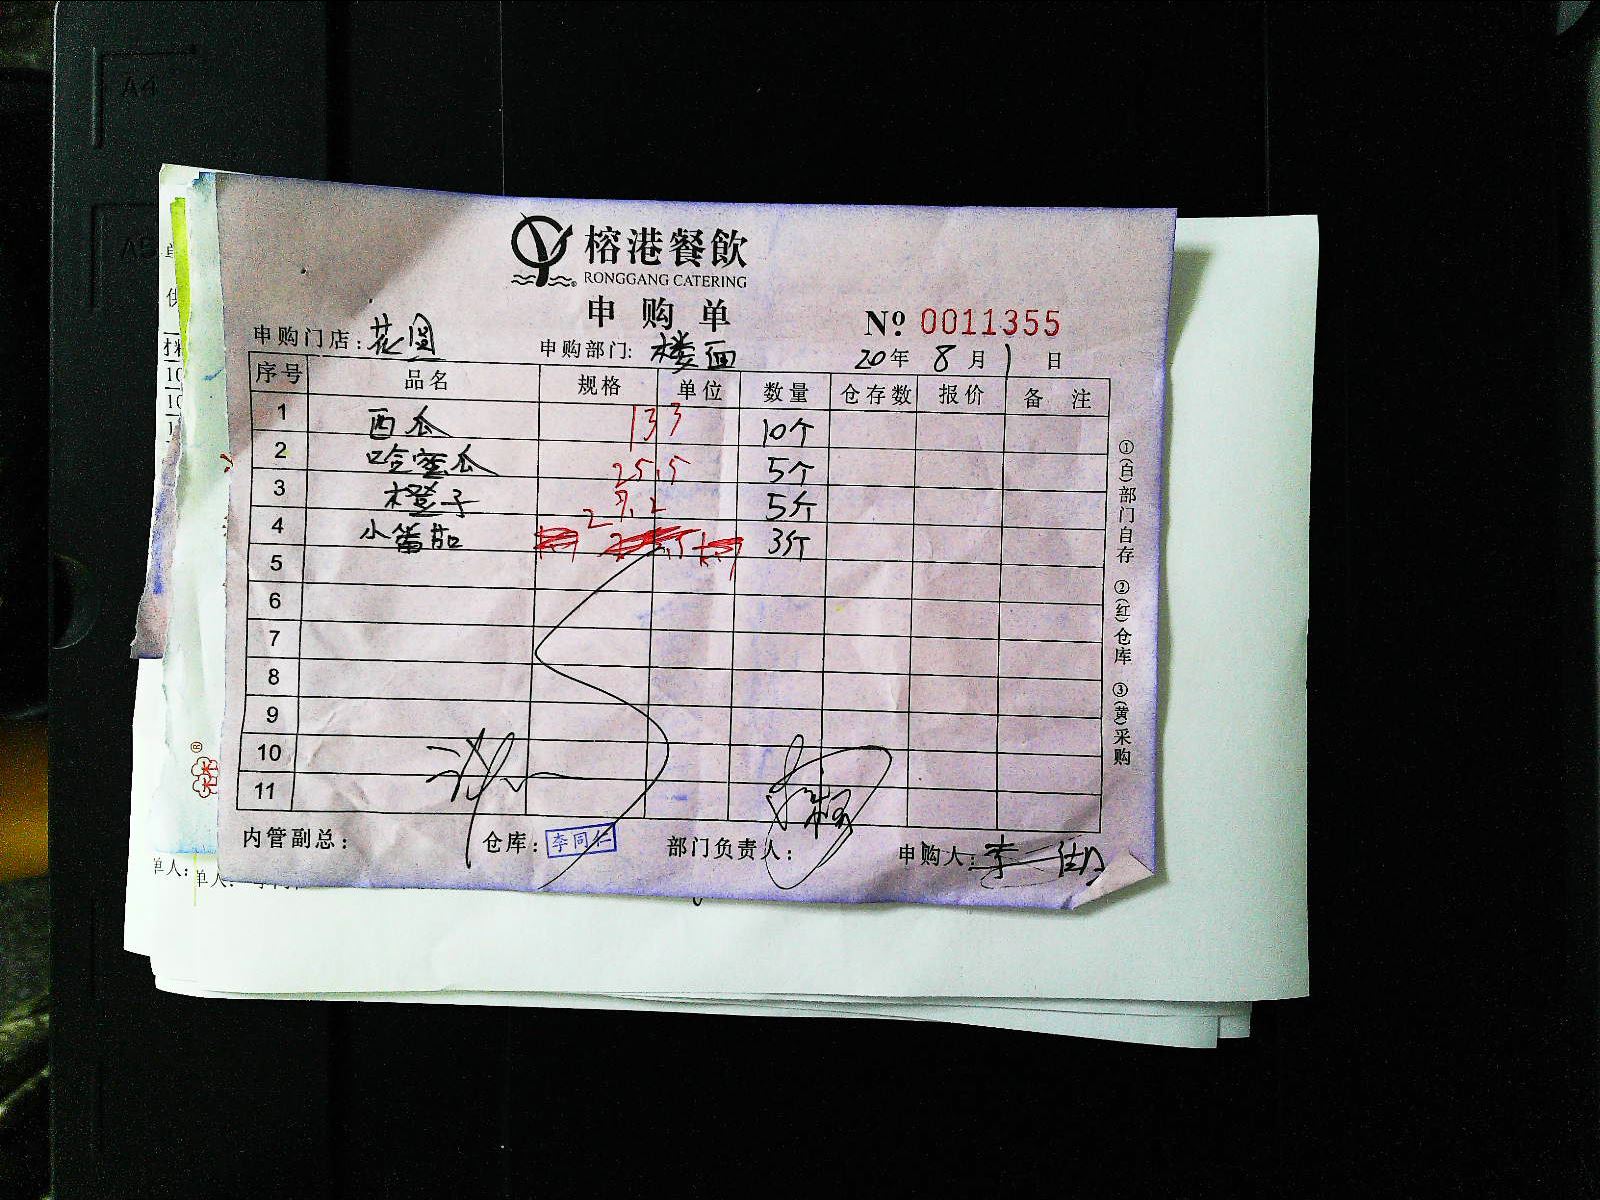 榕港餐飲
RONGGANG CATERING
申购单
Nº 0011355
申购门店：花園 申购部门：楼面 20年 8月 1日
序号 品名 规格 单位 数量 仓存数 报价 备注
1 西瓜 133 10个
2 哈蜜瓜 25.5 5个
3 橙子 5斤
4 小番茄 3斤
5
6
7
8
9
10
11
内管副总： 仓库：李同仁 部门负责人： 申购人：李
①(白)部门自存 ②(红)仓库 ③(黄)采购
单人： 单人：
A4
A5